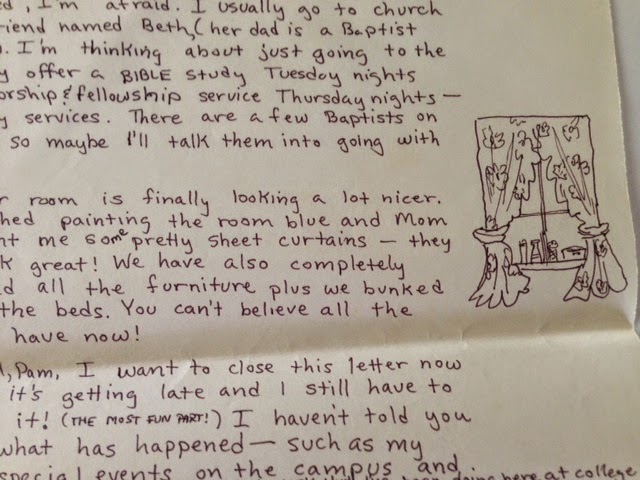 I'm afraid. I usually go to church
friend named Beth, (her dad is a Baptist
I'm thinking about just going to the
offer a BIBLE study Tuesday nights
worship & fellowship service Thursday nights —
services. There are a few Baptists on
so maybe I'll talk them into going with
room is finally looking a lot nicer.
painting the room blue and Mom
me some pretty sheet curtains — they
great! We have also completely
all the furniture plus we bunked
the beds. You can't believe all the
have now!
Pam, I want to close this letter now
it's getting late and I still have to
it! (THE MOST FUN PART!) I haven't told you
what has happened — such as my
special events on the campus and
doing here at college